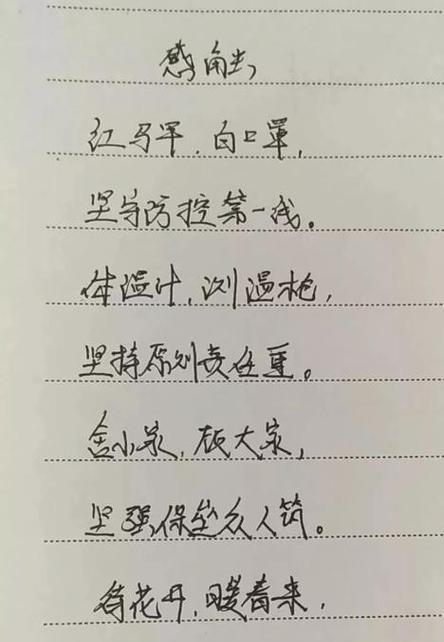 感触
红马甲，白口罩，
坚守防控第一线。
体温计，测温枪，
坚持原则责任重。
舍小家，顾大家，
坚强保垒众人筑。
待花开，暖春来，